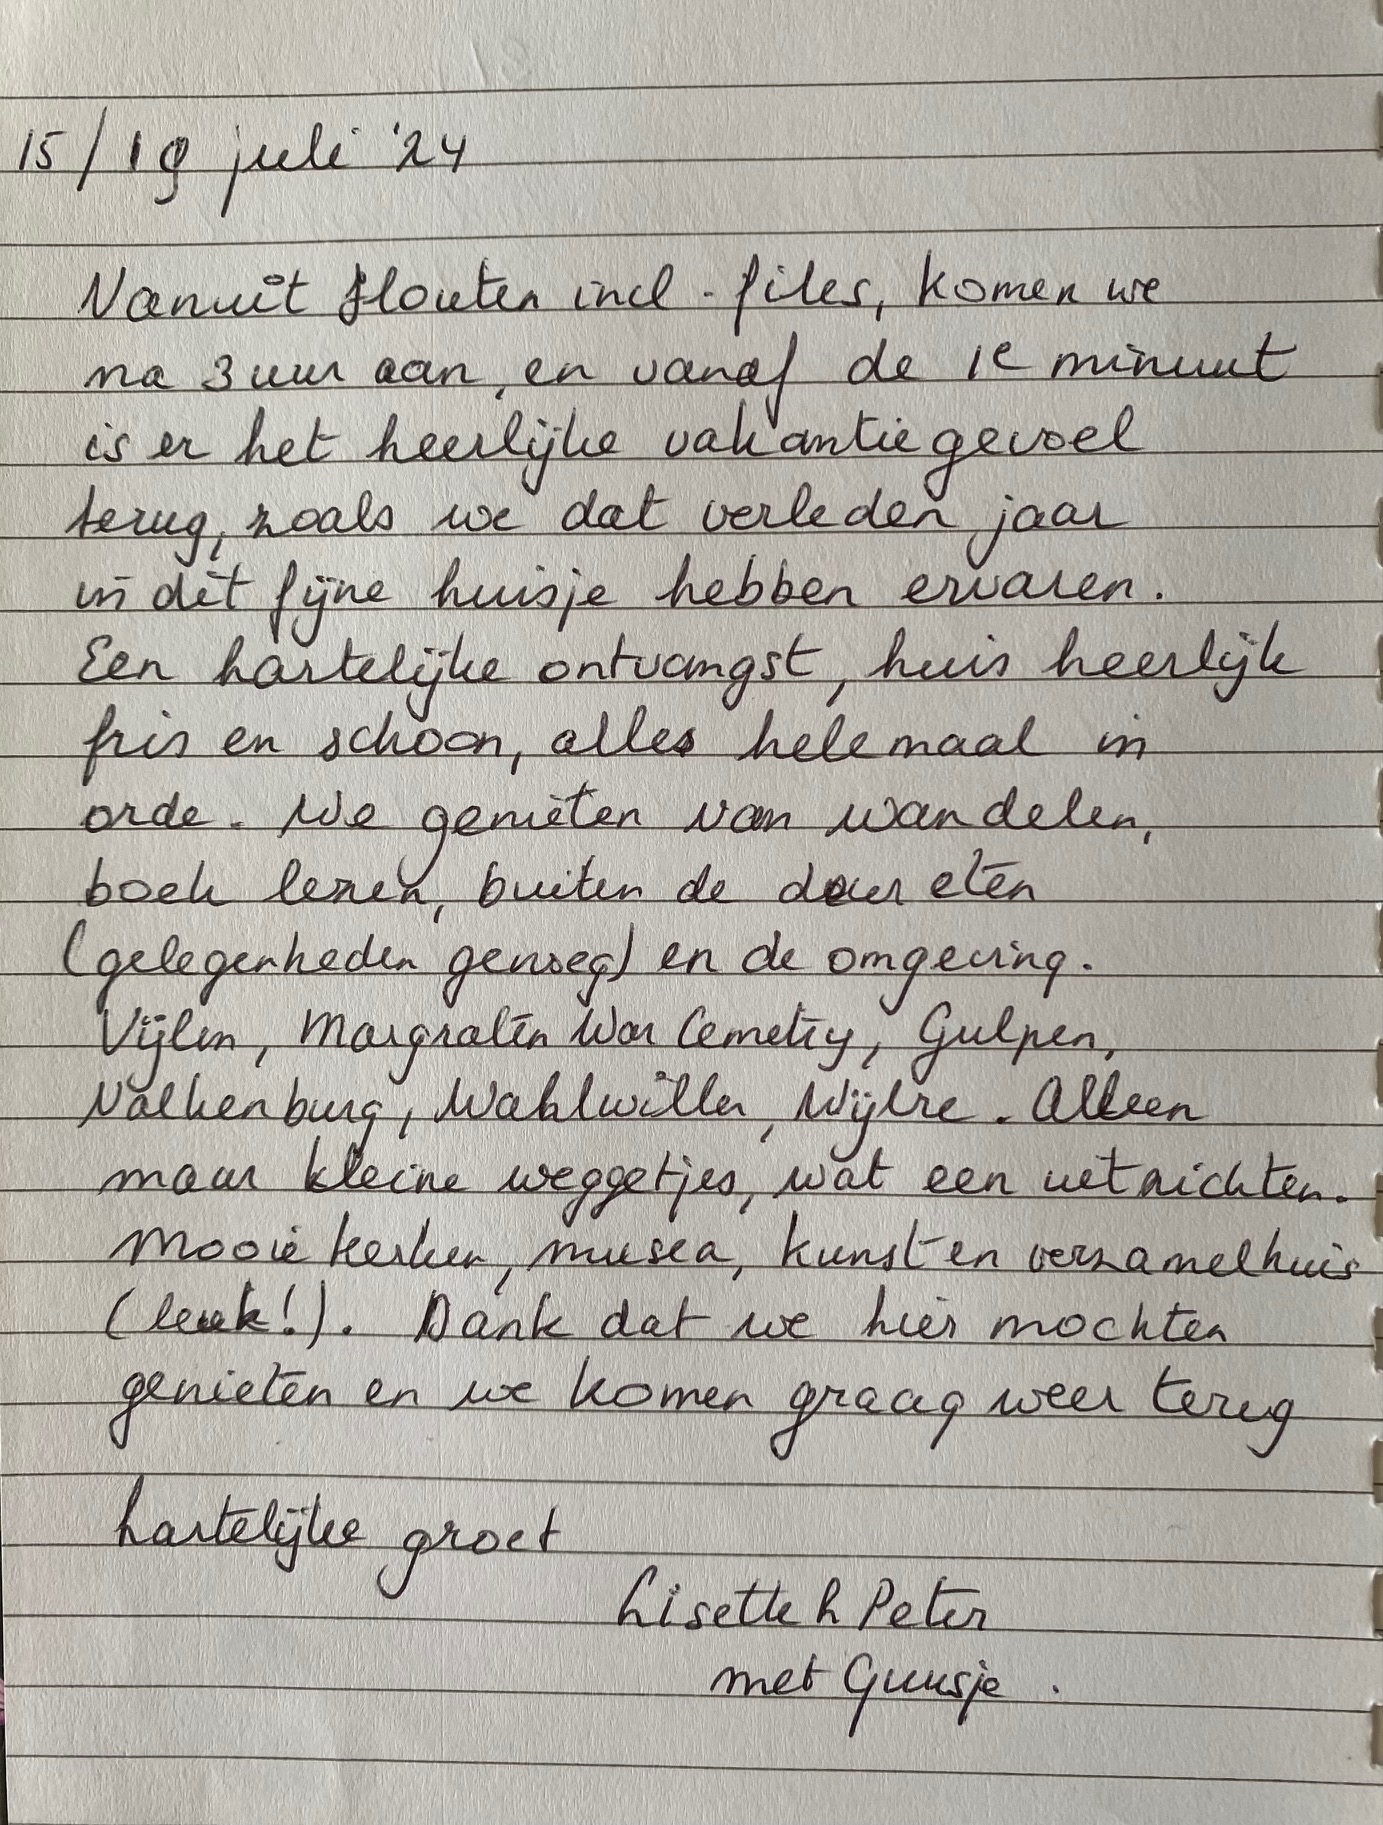 15/19 juli '24
Vanuit Houten incl. files, komen we
na 3 uur aan, en vanaf de 1e minuut
is er het heerlijke vakantiegevoel
terug, zoals we dat verleden jaar
in dit fijne huisje hebben ervaren.
Een hartelijke ontvangst, huis heerlijk
fris en schoon, alles helemaal in
orde. We genieten van wandelen,
boek lezen, buiten de deur eten
(gelegenheden genoeg) en de omgeving.
Vijlen, Margraten War Cemetry, Gulpen,
Valkenburg, Wahlwiller, Wijlre. Alleen
maar kleine weggetjes, wat een uitzichten.
Mooie kerken, musea, kunst en verzamelhuis
(leuk!). Dank dat we hier mochten
genieten en we komen graag weer terug
hartelijke groet
Lisette & Peter
met Guusje.